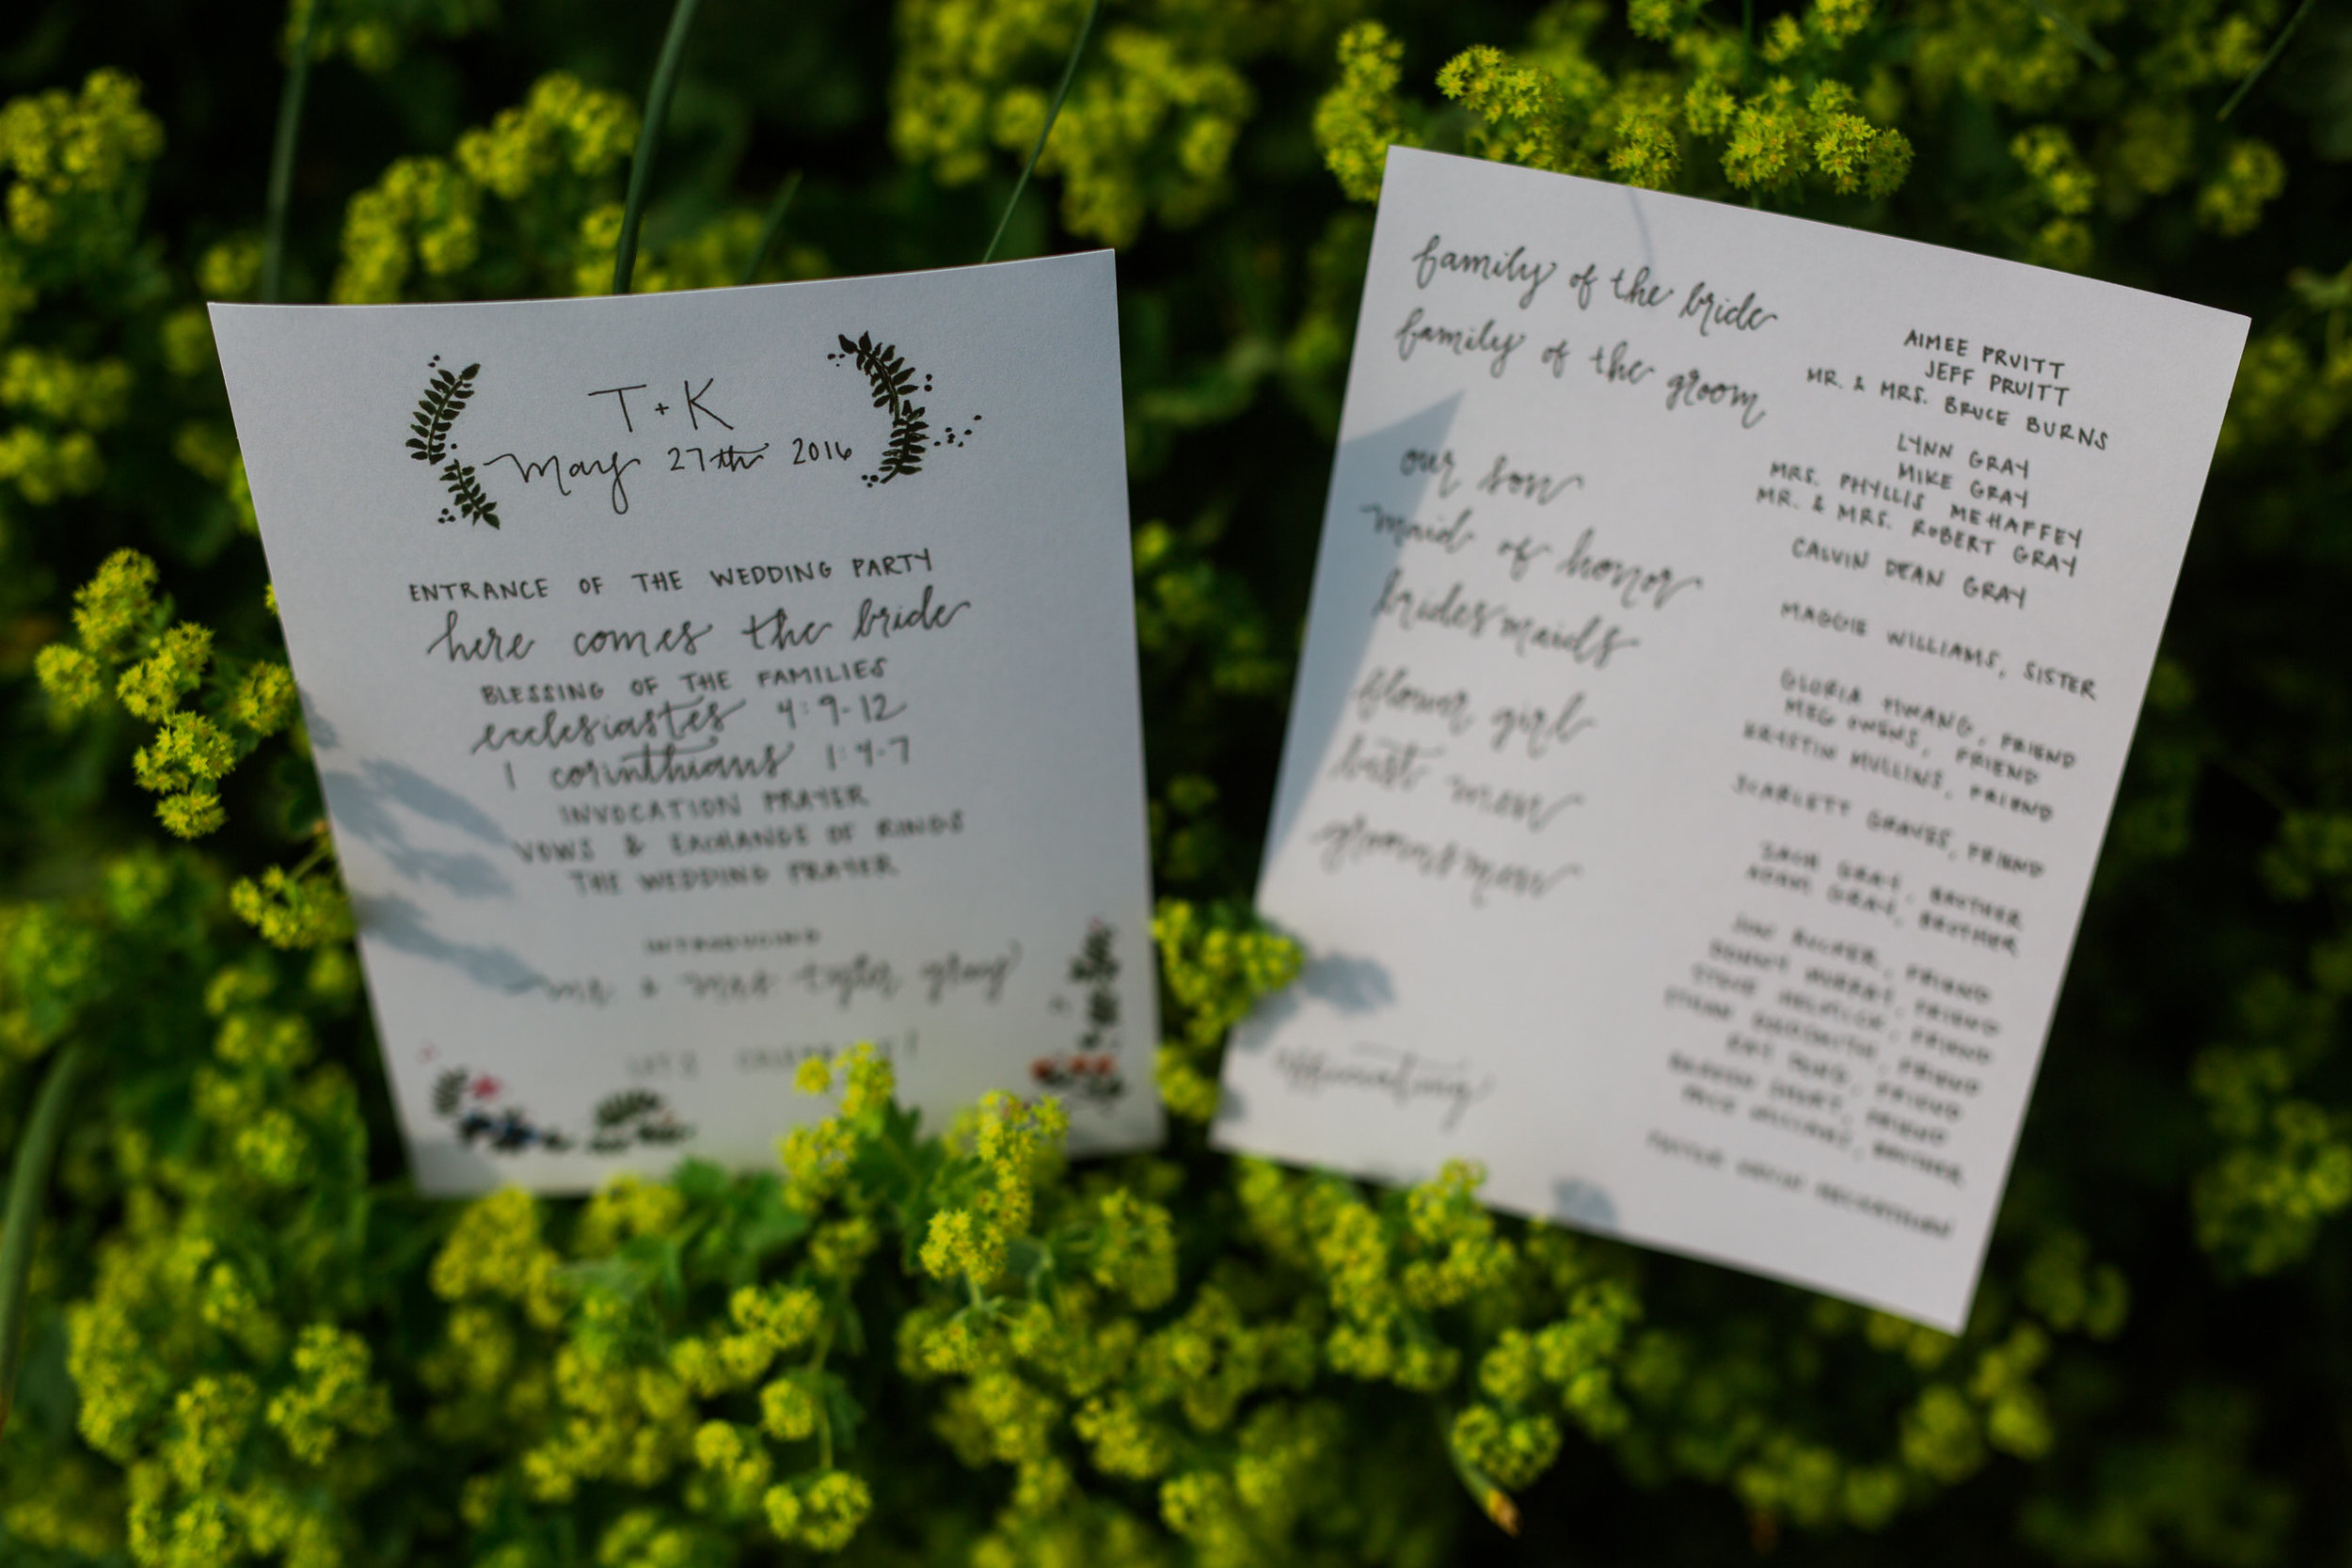 T + K
May 27th 2016
ENTRANCE OF THE WEDDING PARTY
here comes the bride
BLESSING OF THE FAMILIES
ecclesiastes 4:9-12
1 corinthians 1:4-7
INVOCATION PRAYER
VOWS & EXCHANGE OF RINGS
THE WEDDING PRAYER
INTRODUCING
mr & mrs tyler gray
LET'S CELEBRATE!
family of the bride
family of the groom
our son
maid of honor
bridesmaids
flower girl
best men
groomsmen
officiating
AIMEE PRUITT
JEFF PRUITT
MR. & MRS. BRUCE BURNS
LYNN GRAY
MIKE GRAY
MRS. PHYLLIS MEHAFFEY
MR. & MRS. ROBERT GRAY
CALVIN DEAN GRAY
MAGGIE WILLIAMS, SISTER
GLORIA HWANG, FRIEND
MEG OWENS, FRIEND
KRISTIN MULLINS, FRIEND
SCARLETT GRAVES, FRIEND
ZACH GRAY, BROTHER
ADAM GRAY, BROTHER
FRIEND
MURRAY, FRIEND
STEVE FRIEND
FRIEND
FRIEND
FRIEND
WILLIAMS, BROTHER
PASTOR